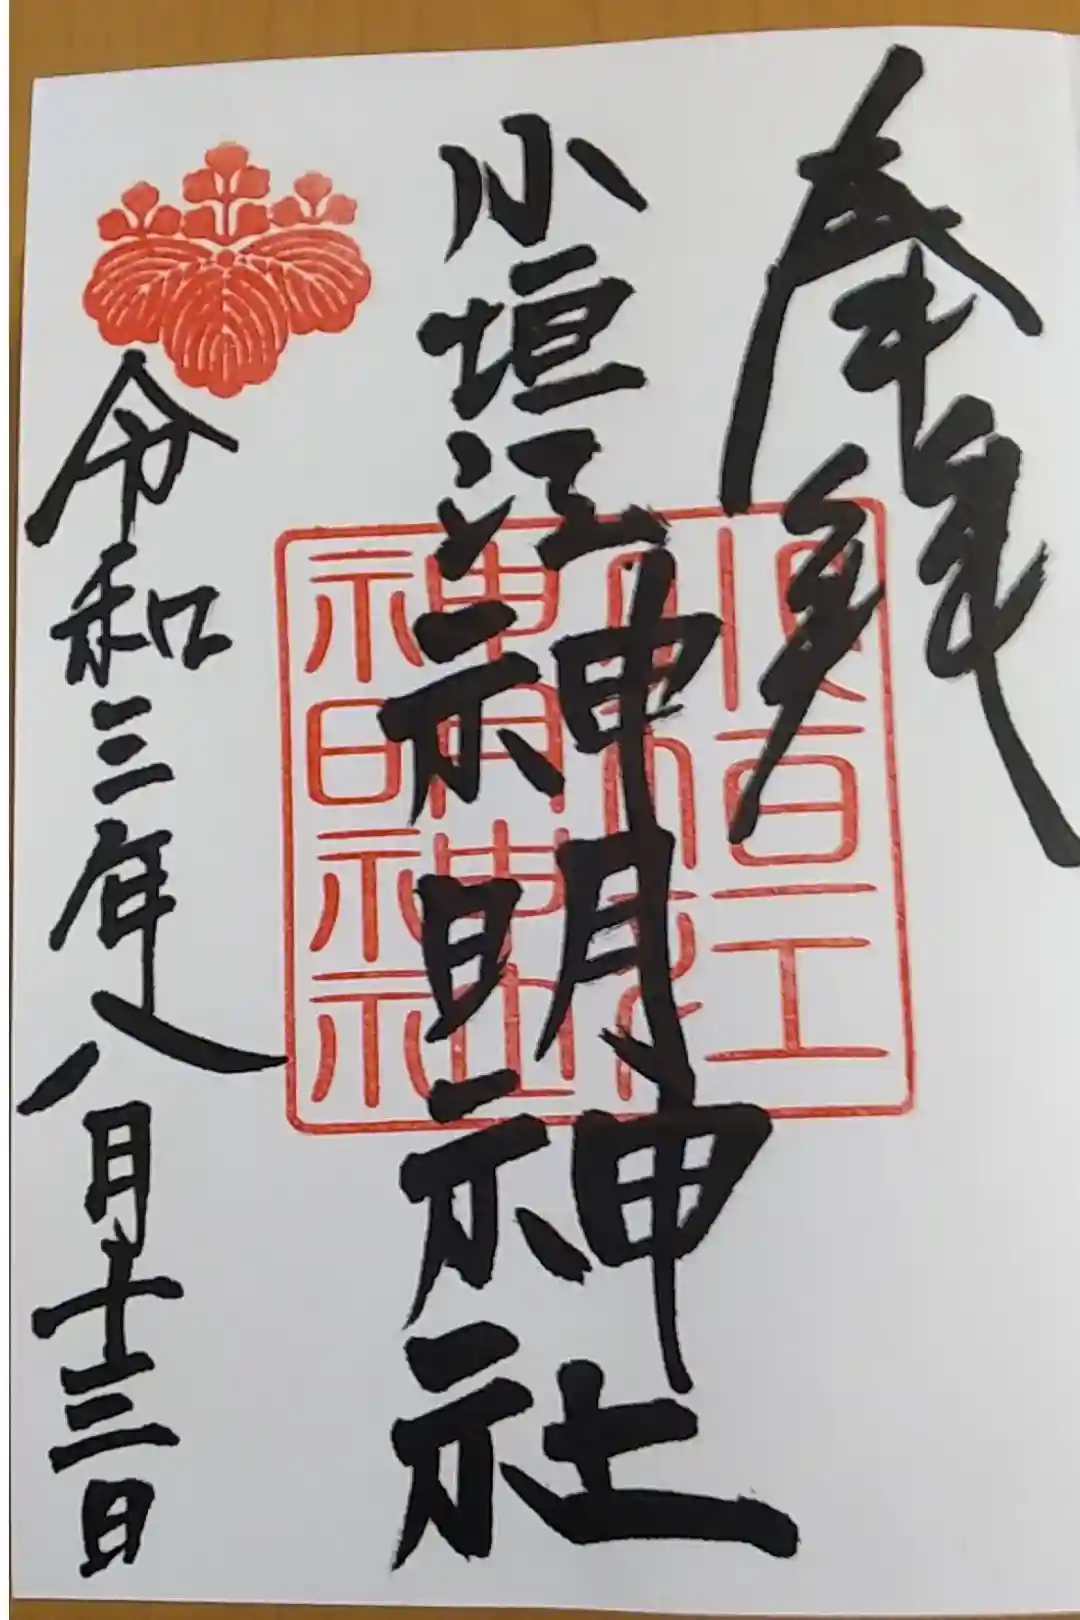 奉拝
小垣江神明神社
小垣江
神明神社
令和三年八月十三日